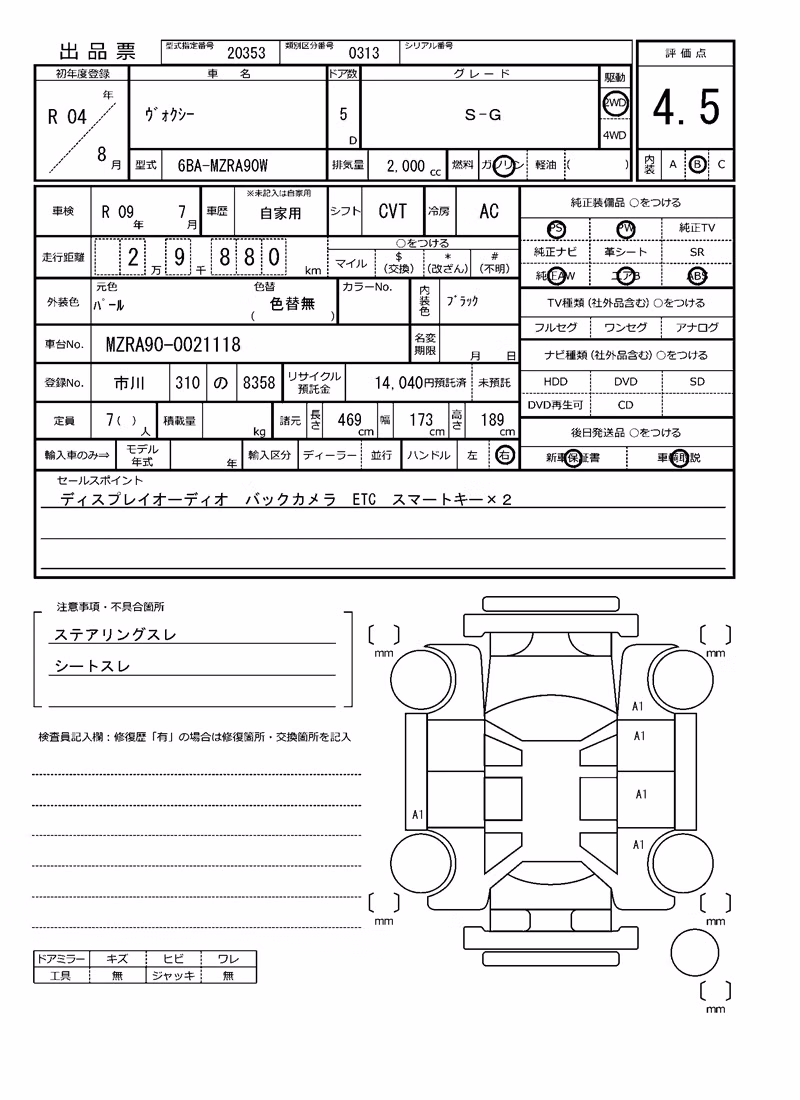 出品票 型式指定番号 20353 類別区分番号 0313 シリアル番号
評価点
4.5
内装 A B C
初年度登録 車名 ドア数 グレード 駆動
R 04 年 8 月
ヴォクシー 5 D S-G 2WD 4WD
型式 6BA-MZRA90W 排気量 2,000 cc 燃料 ガソリン 軽油 ( )
車検 R 09 年 7 月 車歴 ※未記入は自家用 自家用 シフト CVT 冷房 AC
走行距離 2 万 9 千 8 8 0 km
○をつける
マイル $ (交換) * (改ざん) # (不明)
外装色 元色 パール 色替 ( 色替無 ) カラーNo. 内装色 ブラック
車台No. MZRA90-0021118 名変期限 月 日
登録No. 市川 310 の 8358 リサイクル預託金 14,040円預託済 未預託
定員 7 ( ) 人 積載量 kg 諸元 長さ 469 cm 幅 173 cm 高さ 189 cm
輸入車のみ⇒ モデル年式 年 輸入区分 ディーラー 並行 ハンドル 左 右
純正装備品 ○をつける
PS PW 純正TV
純正ナビ 革シート SR
純正AW エアB ABS
TV種類(社外品含む) ○をつける
フルセグ ワンセグ アナログ
ナビ種類(社外品含む) ○をつける
HDD DVD SD
DVD再生可 CD
後日発送品 ○をつける
新車保証書 車輌取説
セールスポイント
ディスプレイオーディオ バックカメラ ETC スマートキー×2
注意事項・不具合箇所
ステアリングスレ
シートスレ
検査員記入欄：修復歴「有」の場合は修復箇所・交換箇所を記入
ドアミラー キズ ヒビ ワレ
工具 無 ジャッキ 無
mm mm
A1
A1
A1
A1
A1
mm mm
mm